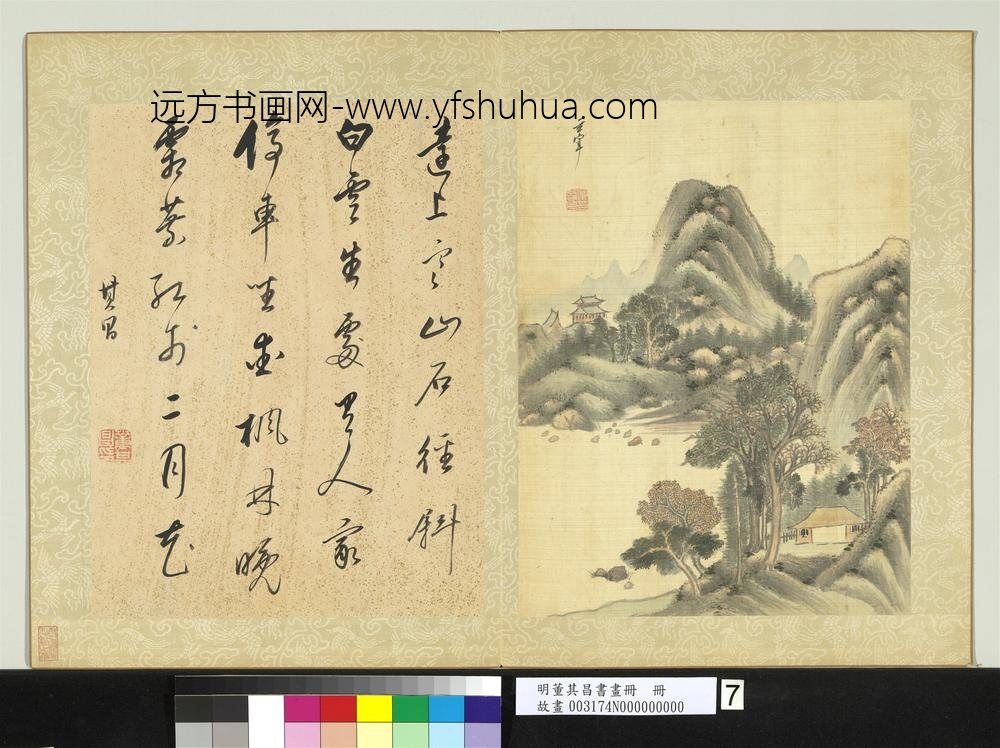 远方书画网-www.yfshuhua.com
玄宰
遠上寒山石徑斜
白雲生處有人家
停車坐愛楓林晚
霜葉紅於二月花
其昌
明董其昌書畫冊 冊
故畫 003174N000000000
7